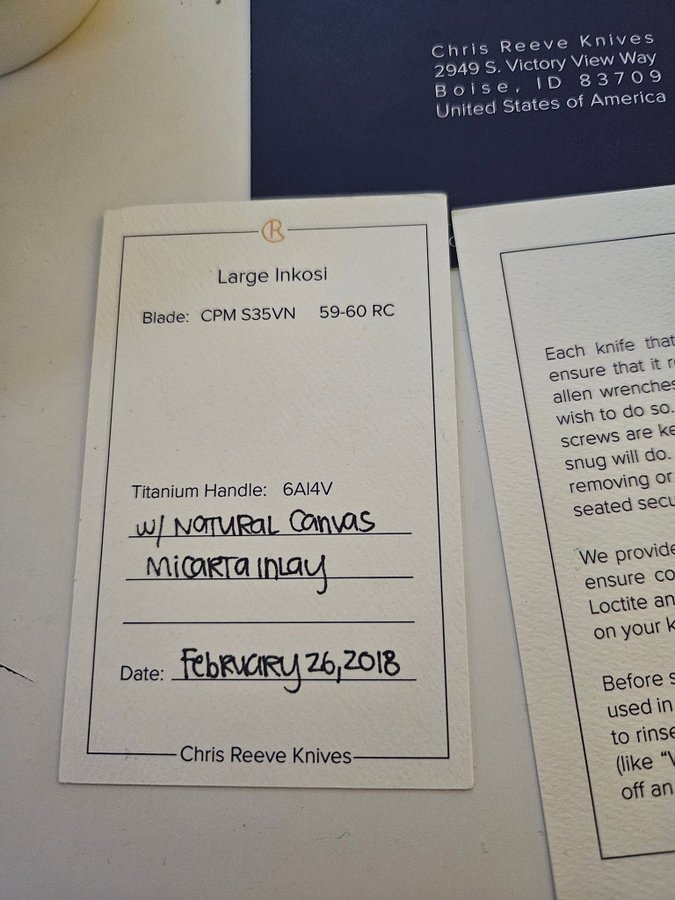 Chris Reeve Knives
2949 S. Victory View Way
Boise, ID 83709
United States of America
R
Large Inkosi
Blade: CPM S35VN 59-60 RC
Titanium Handle: 6Al4V
w/ NATURAL Canvas
MICARTA INLAY
Date: FebRUARY 26, 2018
Chris Reeve Knives
Each knife that
ensure that it
allen wrenches
wish to do so.
screws are
snug will do.
removing or
seated
We provide
ensure
Loctite
on your
Before
used in
to rinse
(like
off